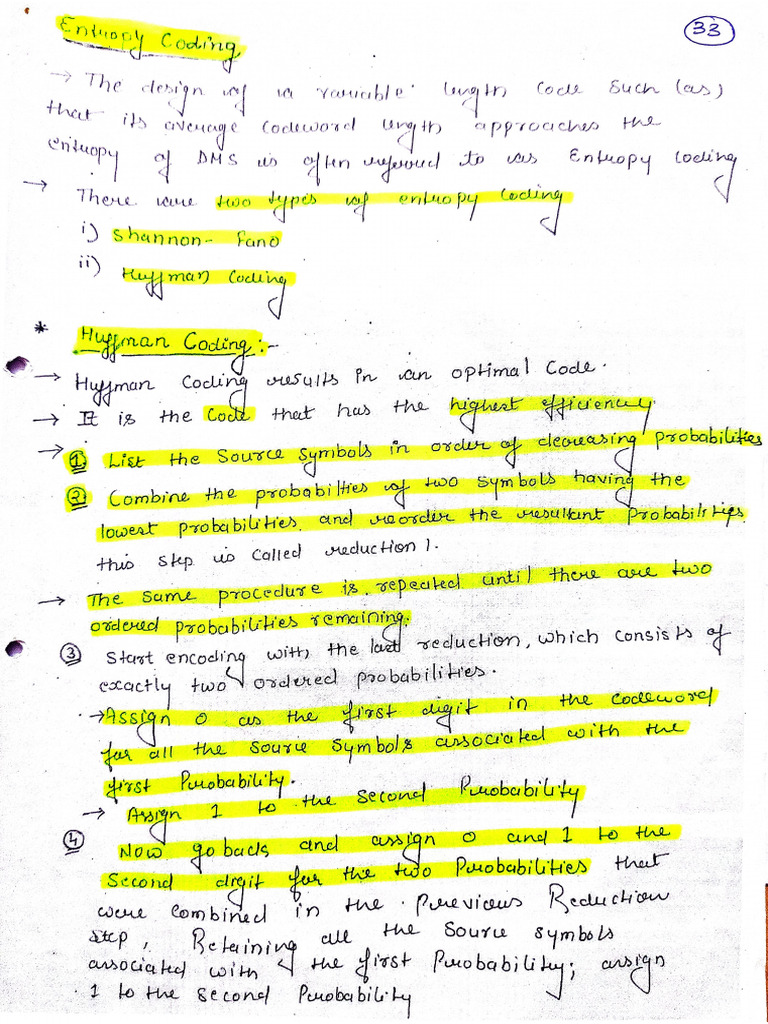 Entropy Coding
33
→ The design of a variable length code such (as)
that its average codeword length approaches the
entropy of DMS is often referred to as Entropy Coding
→ There are two types of entropy Coding
i) Shannon- Fano
ii) Huffman Coding
* Huffman Coding:-
→ Huffman Coding results in an optimal Code.
→ It is the Code that has the highest efficiency.
→ 1. List the Source Symbols in order of decreasing probabilities
2. Combine the probabilties of two symbols having the
lowest probabilities and reorder the resultant Probabilities
this step is called reduction 1.
→ The same procedure is repeated until there are two
ordered probabilities remaining.
3 Start encoding with the last reduction, which consists of
exactly two ordered probabilities.
→ Assign 0 as the first digit in the codeword
for all the Source Symbols associated with the
first Probability.
→ Assign 1 to the Second Probability
4 Now go back and assign 0 and 1 to the
Second digit for the two Probabilities that
were combined in the Previous Reduction
step, Retaining all the Source symbols
associated with the first Probability; assign
1 to the second Probability